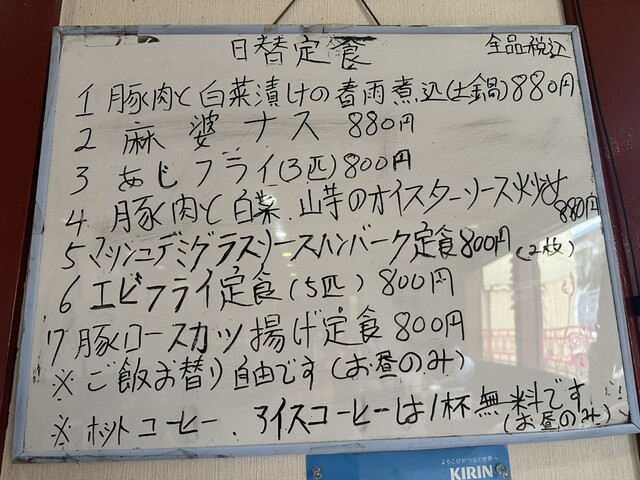 日替定食 全品税込
1 豚肉と白菜漬けの春雨煮込(土鍋)880円
2 麻婆ナス 880円
3 あじフライ(3匹)800円
4 豚肉と白菜.山芋のオイスターソース炒め 880円
5 マッシュデミグラスソースハンバーク定食800円(2枚)
6 エビフライ定食(5匹)800円
7 豚ロースカツ揚げ定食800円
※ご飯お替り自由です(お昼のみ)
※ホットコーヒー.アイスコーヒーは1杯無料です(お昼のみ)
よろこびがつなぐ世界へ
KIRIN